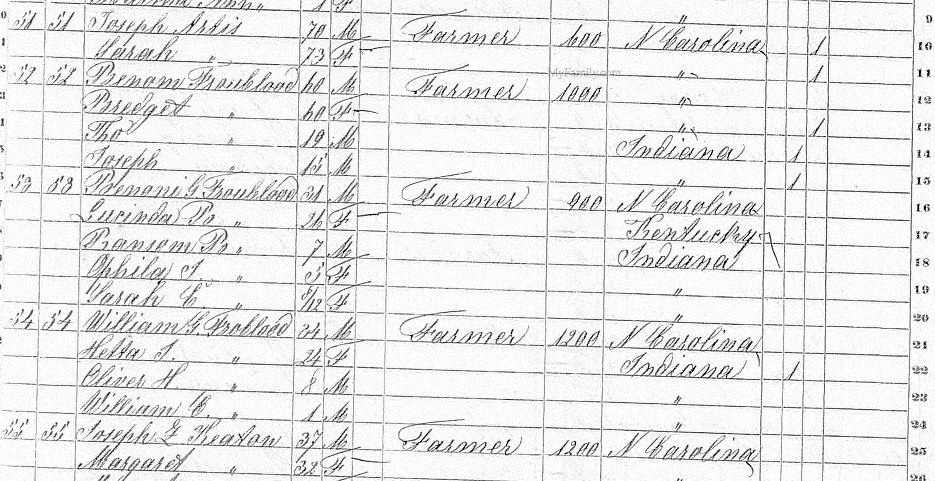 51 51 Joseph Artis 70 M Farmer 600 N Carolina 1 10
Sarah " 73 F " 1 11
52 52 Benom Troublood 60 M Farmer 1000 " 12
Bredget " 60 F " 1 13
Tho " 19 M Indiana 1 14
Joseph " 15 M " 1 15
53 53 Benoni G. Troublood 31 M Farmer 900 N Carolina 16
Lucinda B " 26 F Kentucky 17
Ransom B " 7 M Indiana 18
Ophila J. " 5 F " 19
Sarah E " /12 F " 20
54 54 William G. Troblood 34 M Farmer 1200 N Carolina 21
Hetta J. " 24 F Indiana 1 22
Oliver H " 8 M " 23
William C. " 1 M " 24
55 55 Joseph Z Keaton 37 M Farmer 1200 N Carolina 25
Margaret " 32 F "
MyFamily.com